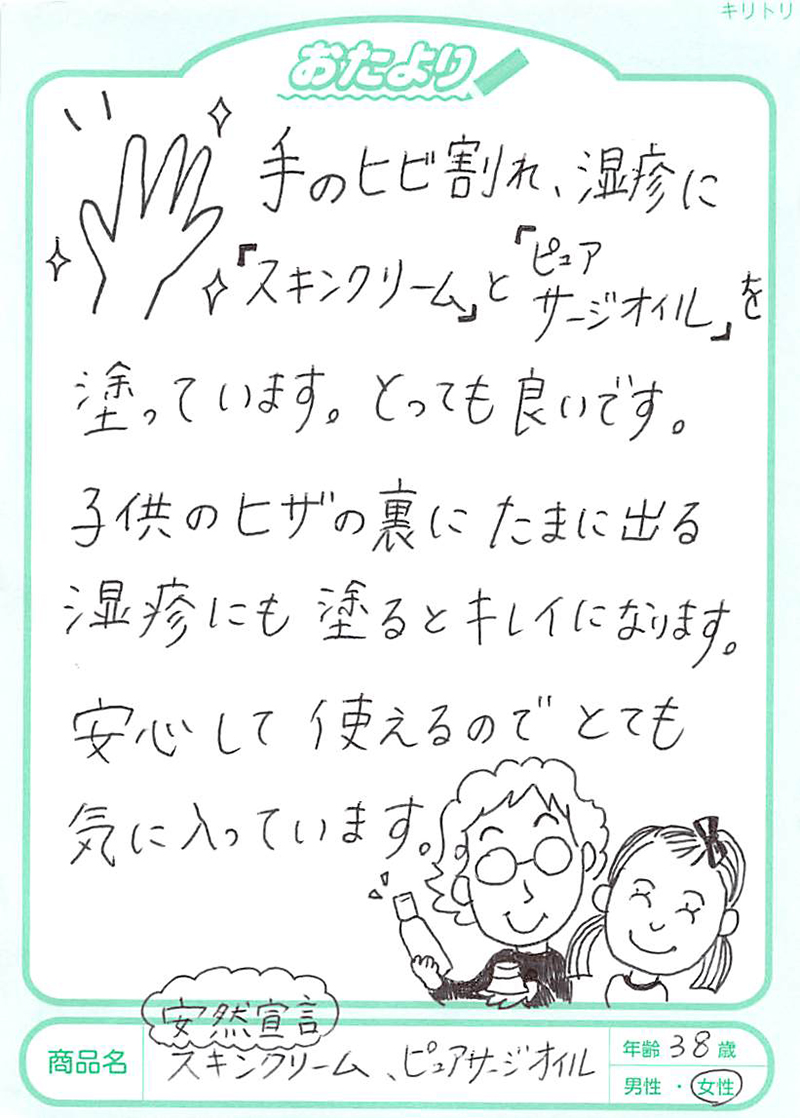 キリトリ
おたより
手のヒビ割れ、湿疹に
『スキンクリーム』と『ピュアサージオイル』を
塗っています。とっても良いです。
子供のヒザの裏に たまに出る
湿疹にも 塗るとキレイになります。
安心して 使えるので とても
気に入っています。
商品名
安然宣言
スキンクリーム、ピュアサージオイル
年齢 38 歳
男性・女性